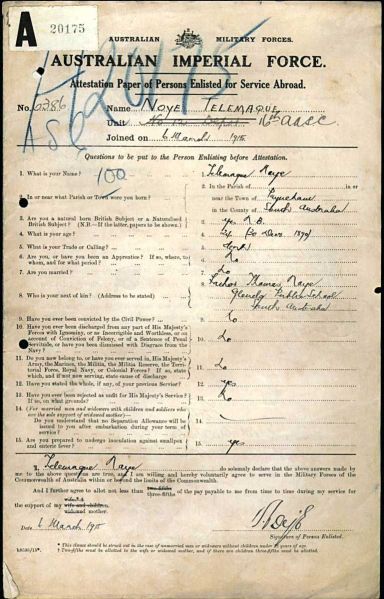 A 20175
AUSTRALIAN MILITARY FORCES.
AUSTRALIAN IMPERIAL FORCE.
Attestation Paper of Persons Enlisted for Service Abroad.
20175
No. 6386 Name NOYE TELEMAQUE
ASC Unit 16th AASC
Joined on 6 March 1915
Questions to be put to the Person Enlisting before Attestation.
1. What is your Name? 100 1. Telemaque Noye
2. In or near what Parish or Town were you born? 2. In the Parish of in or
near the Town of
in the County of South Australia
3. Are you a natural born British Subject or a Naturalised
British Subject? (N.B.—If the latter, papers to be shown.) 3. yes N.B.
4. What is your age? 4.
5. What is your Trade or Calling? 5.
6. Are you, or have you been an Apprentice? If so, where, to
whom, and for what period? 6. No
7. Are you married? 7. No
8. Who is your next of kin? (Address to be stated) 8. Father Thomas Noye
Public School
South Australia
9. Have you ever been convicted by the Civil Power? 9. No
10. Have you ever been discharged from any part of His Majesty's
Forces with Ignominy, or as Incorrigible and Worthless, or on
account of Conviction of Felony, or of a Sentence of Penal
Servitude, or have you been dismissed with Disgrace from the
Navy? 10. No
11. Do you now belong to, or have you ever served in, His Majesty's
Army, the Marines, the Militia, the Militia Reserve, the Terri-
torial Force, Royal Navy, or Colonial Forces? If so, state
which, and if not now serving, state cause of discharge 11. No
12. Have you stated the whole, if any, of your previous Service? 12. yes
13. Have you ever been rejected as unfit for His Majesty's Service?
If so, on what grounds? 13. No
14. (For married men and widowers with children and soldiers who
are the sole support of widowed mother)—
Do you understand that no Separation Allowance will be
issued to you after embarkation during your term of
service? 14.
15. Are you prepared to undergo inoculation against smallpox
and enteric fever? 15. yes
I, Telemaque Noye do solemnly declare that the above answers made by
me to the above questions are true, and I am willing and hereby voluntarily agree to serve in the Military Forces of the
Commonwealth of Australia within or beyond the limits of the Commonwealth.
And I further agree to allot not less than two-fifths three-fifths of the pay payable to me from time to time during my service for
the support of my wife and children. widowed mother.
Date 6 March 1915
Signature of Person Enlisted.
* This clause should be struck out in the case of unmarried men or widowers without children under 18 years of age.
† Two-fifths must be allotted to the wife or widowed mother, and if there are children three-fifths must be allotted.